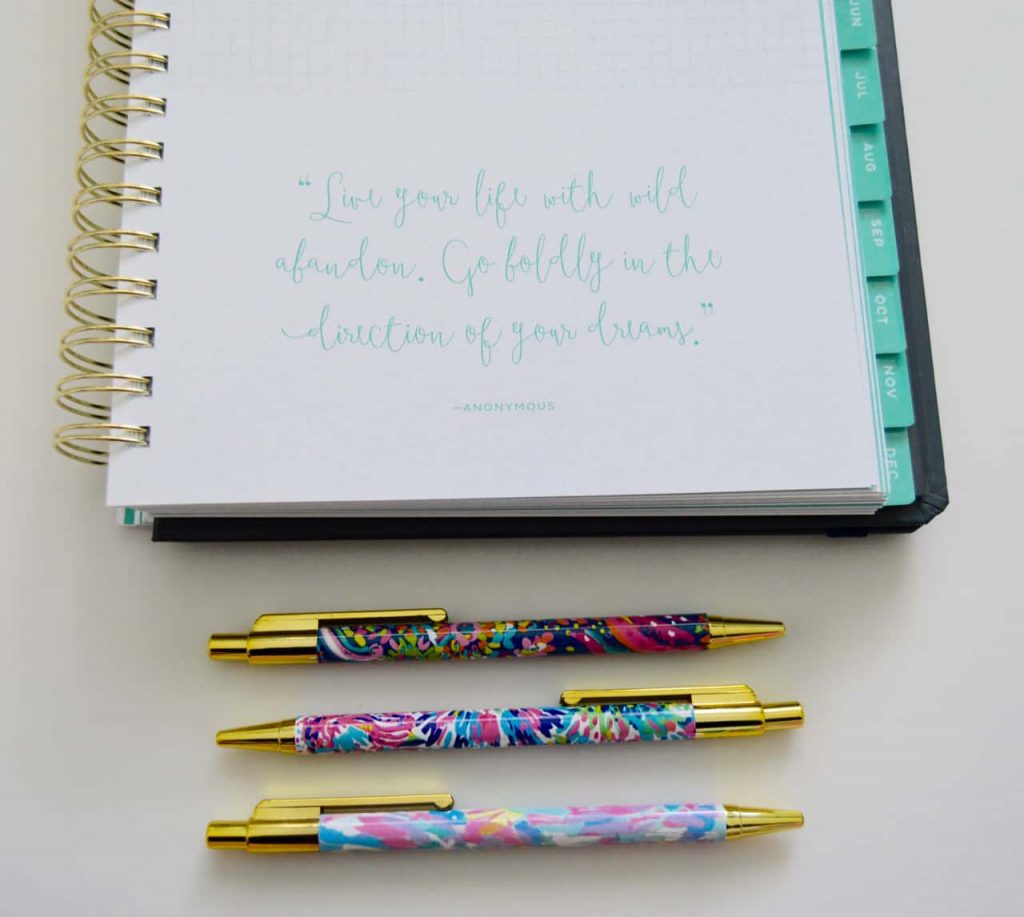 “Live your life with wild
abandon. Go boldly in the
direction of your dreams.”
—ANONYMOUS
JUN
JUL
AUG
SEP
OCT
NOV
DEC